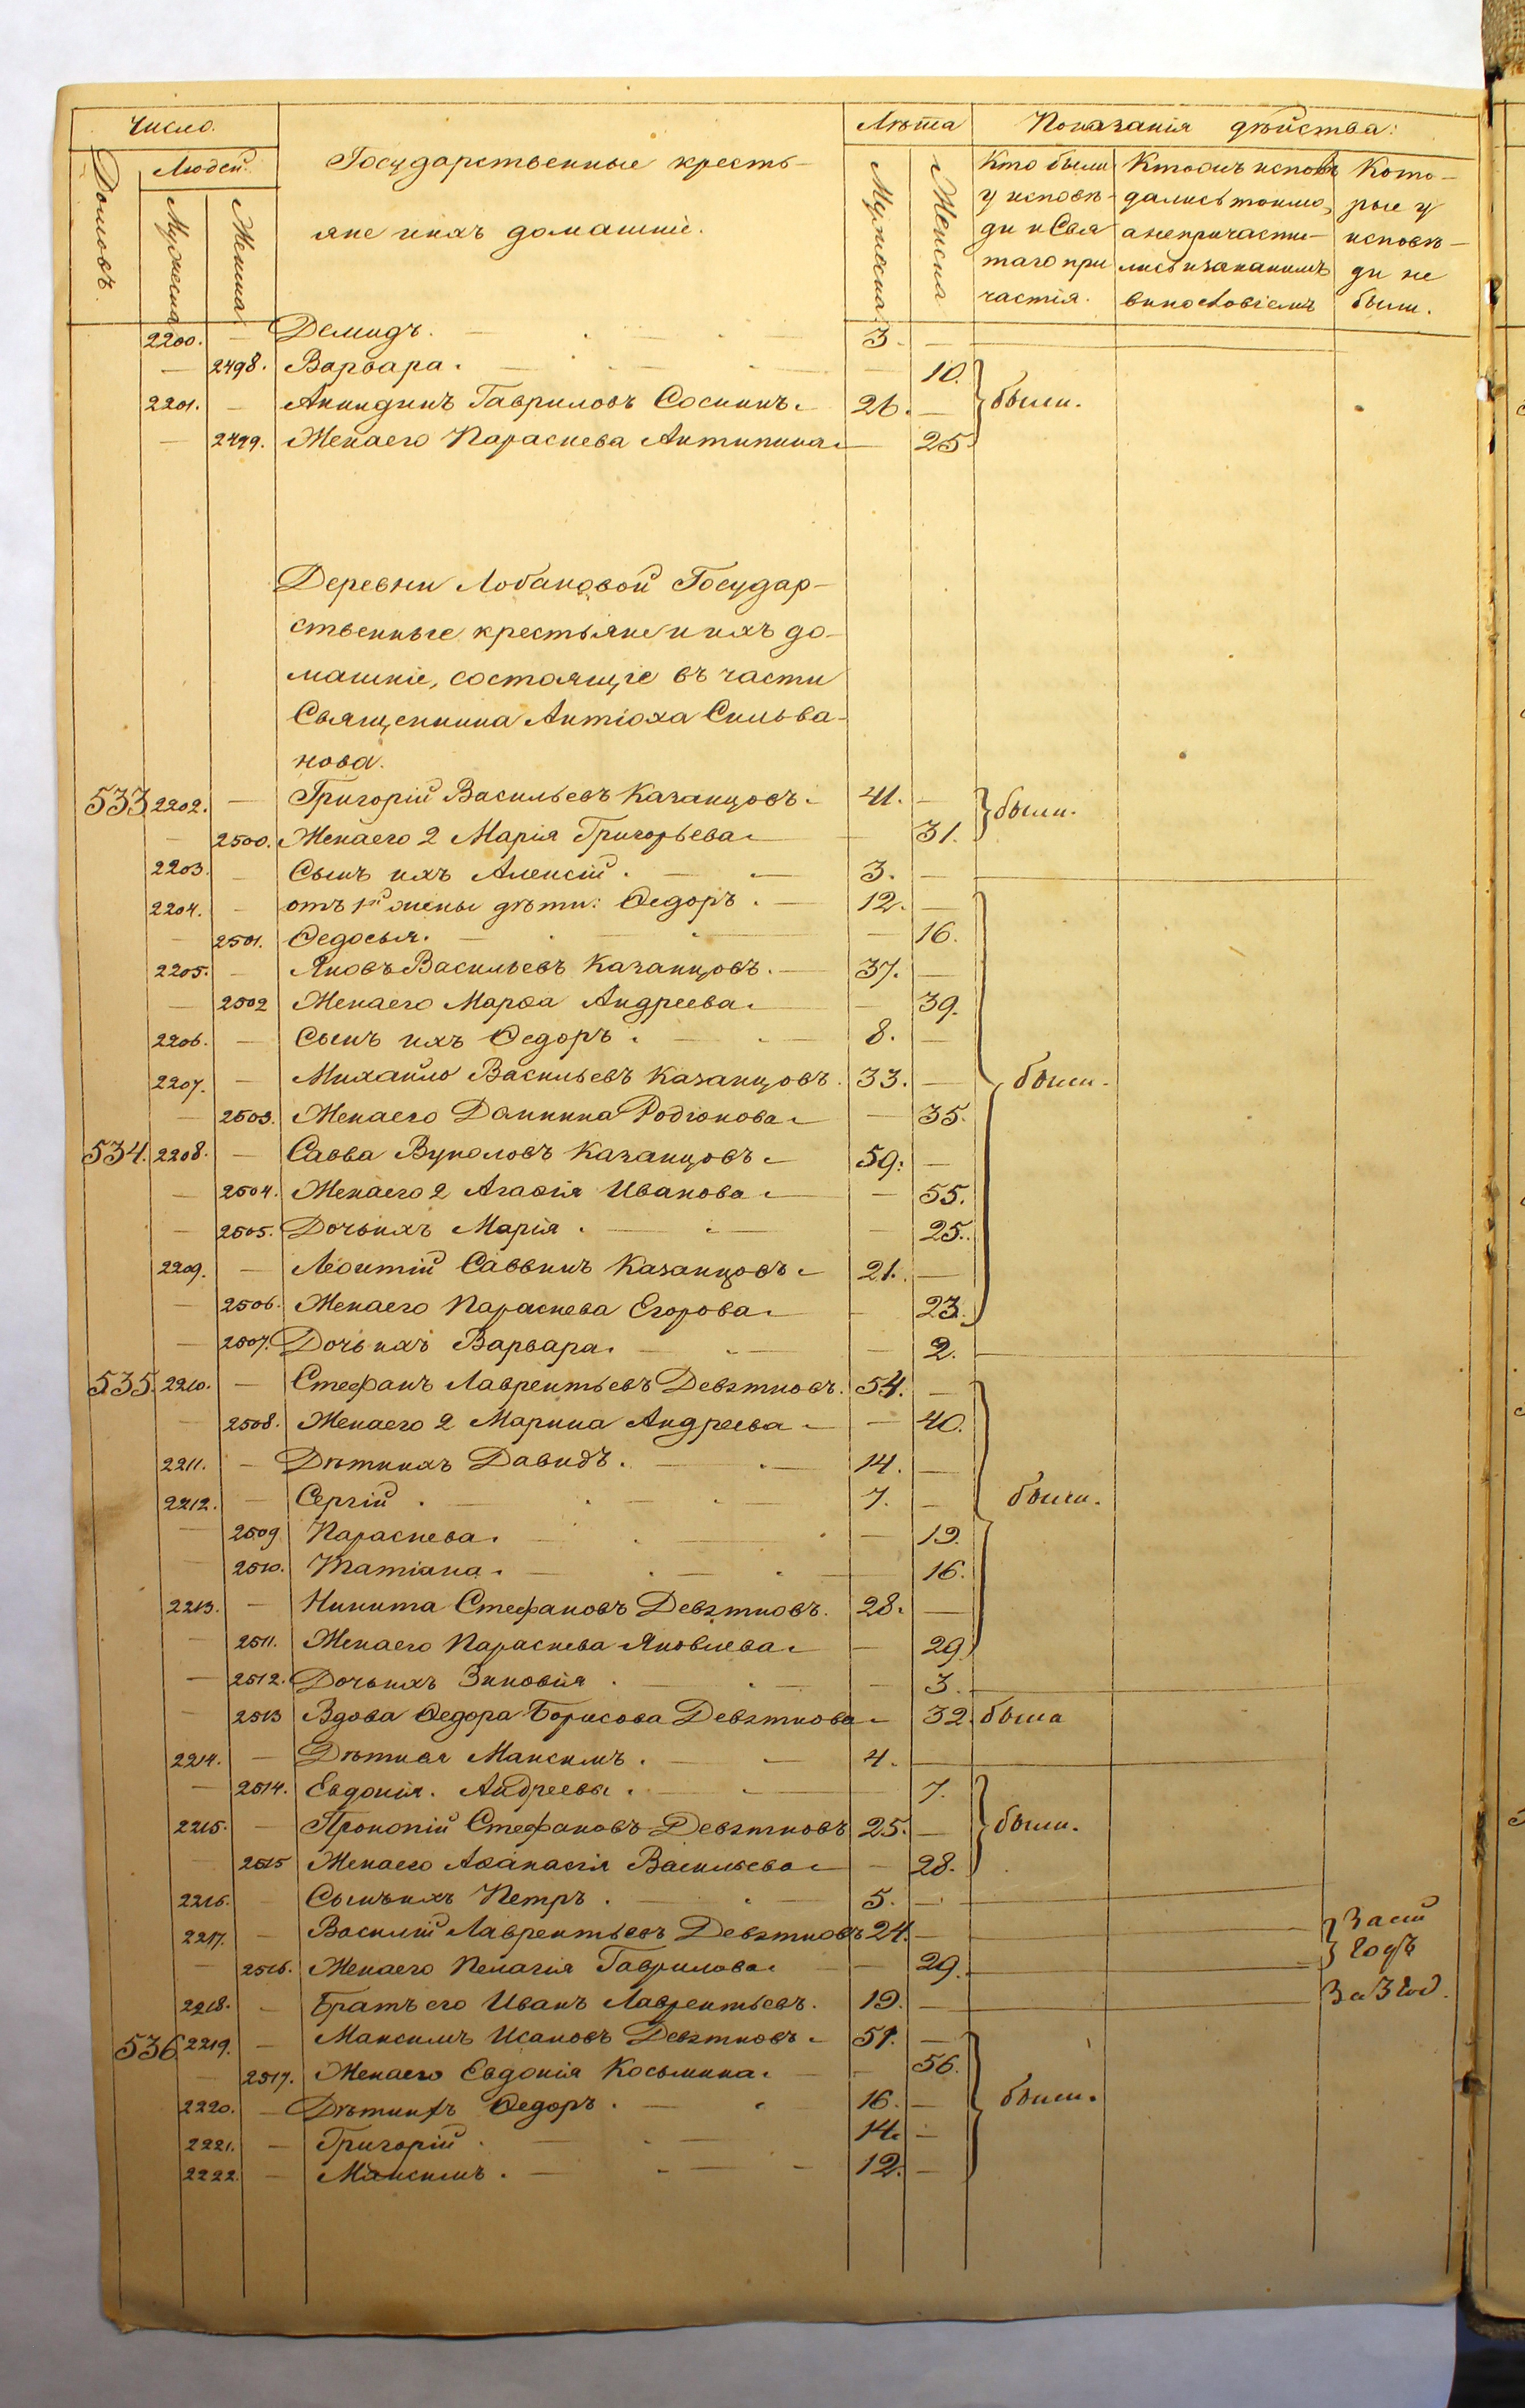 Число.
Лѣта
Показанія дѣйства:
Домовъ.
Людей.
Мужеска
Женска
Государственные кресть-
яне и ихъ домашніе.
Мужеска
Женска
Кто были
у исповѣ-
ди и Свя
таго при
частія.
Кто онъ исповѣ
дались токмо,
а не причасти-
лись и за какимъ
винословіемъ
Кото-
рые у
исповѣ-
ди не
были.
2200. — Демидъ. 3. —
— 2498. Варвара. — 10.
2201. — Акиндинъ Гавриловъ Соснинъ. 26. — были.
— 2499. Жена его Параскева Антипина — 25.
Деревни Лобановой Государ-
ственные крестьяне и ихъ до-
машніе, состоящіе въ части
Священника Антіоха Сильва-
нова.
533 2202. — Григорій Васильевъ Казанцовъ. 41. — были.
— 2500. Жена его 2 Марія Григорьева — 31.
2203. — Сынъ ихъ Алексій. 3. —
2204. — отъ 1й жены дѣти: Ѳедоръ. 12. —
— 2501. Ѳедосья. — 16.
2205. — Яковъ Васильевъ Казанцовъ. 37. —
— 2502 Жена его Марѳа Андреева. — 39.
2206. — Сынъ ихъ Ѳедоръ. 8. —
2207. — Михайло Васильевъ Казанцовъ. 33. — были.
— 2503. Жена его Домника Родіонова — 35.
534. 2208. — Савва Вуколовъ Казанцовъ 59. —
— 2504. Жена его 2 Агаѳія Иванова — 55.
— 2505. Дочь ихъ Марія. — 25.
2209. — Леонтій Саввинъ Казанцовъ 21. —
— 2506. Жена его Параскева Егорова — 23.
— 2507. Дочь ихъ Варвара. — 2.
535. 2210. — Стефанъ Лаврентьевъ Девятковъ. 54. —
— 2508. Жена его 2 Марина Андреева — 40.
2211. — Дѣти ихъ Давидъ. 14. —
2212. — Сергій. 7. — были.
— 2509 Параскева. — 19.
— 2510. Татіана. — 16.
2213. — Никита Стефановъ Девятковъ. 28. —
— 2511. Жена его Параскева Яковлева — 29
— 2512. Дочь ихъ Зиновія. — 3.
— 2513 Вдова Ѳедора Борисова Девяткова — 32. была
2214. — Дѣти ея Максимъ. 4. —
— 2514. Евдокія. Андреевы. 7.
2215. — Прокопій Стефановъ Девятковъ 25. — были.
2515 Жена его Аѳанасія Васильева — 28.
2216. — Сынъ ихъ Петръ. 5. —
2217. — Василій Лаврентьевъ Девятковъ 24. — За сій
— 2516. Жена его Пелагія Гаврилова. — 29. годъ
2218. — Братъ его Иванъ Лаврентьевъ. 19. — За 3 год.
536 2219. — Максимъ Исаковъ Девятковъ 51. —
— 2517. Жена его Евдокія Косьмина. — 56.
2220. — Дѣти ихъ Ѳедоръ. 16. — были.
2221. — Григорій. 14. —
2222. — Максимъ. 12. —